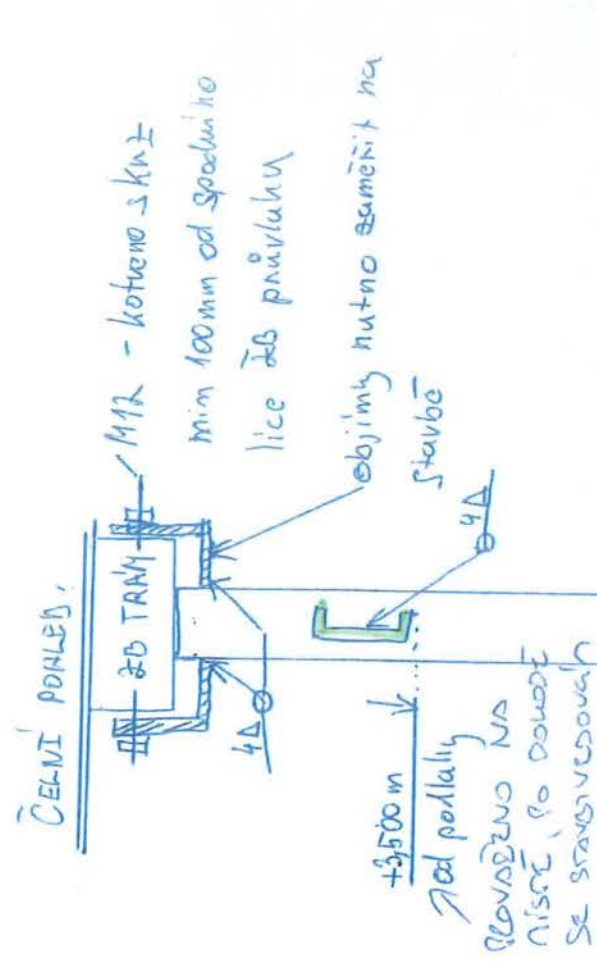 ČELNÍ POHLED.
ŽB TRÁM
M12 - kotveno skrz
min 100mm od spodního
líce ŽB průvlaku
objímky nutno zaměřit na
stavbě
4
4
+3,500 m
od podlahy
PROVÁŽENO NA
MÍSTĚ, PO DOHODĚ
SE STAVBYVEDOUCÍM